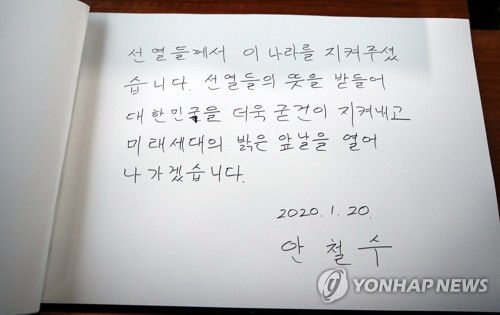 선열들께서 이 나라를 지켜주셨
습니다. 선열들의 뜻을 받들어
대한민국을 더욱 굳건이 지켜내고
미래세대의 밝은 앞날을 열어
나가겠습니다.
2020. 1. 20.
안 철 수
YONHAP NEWS